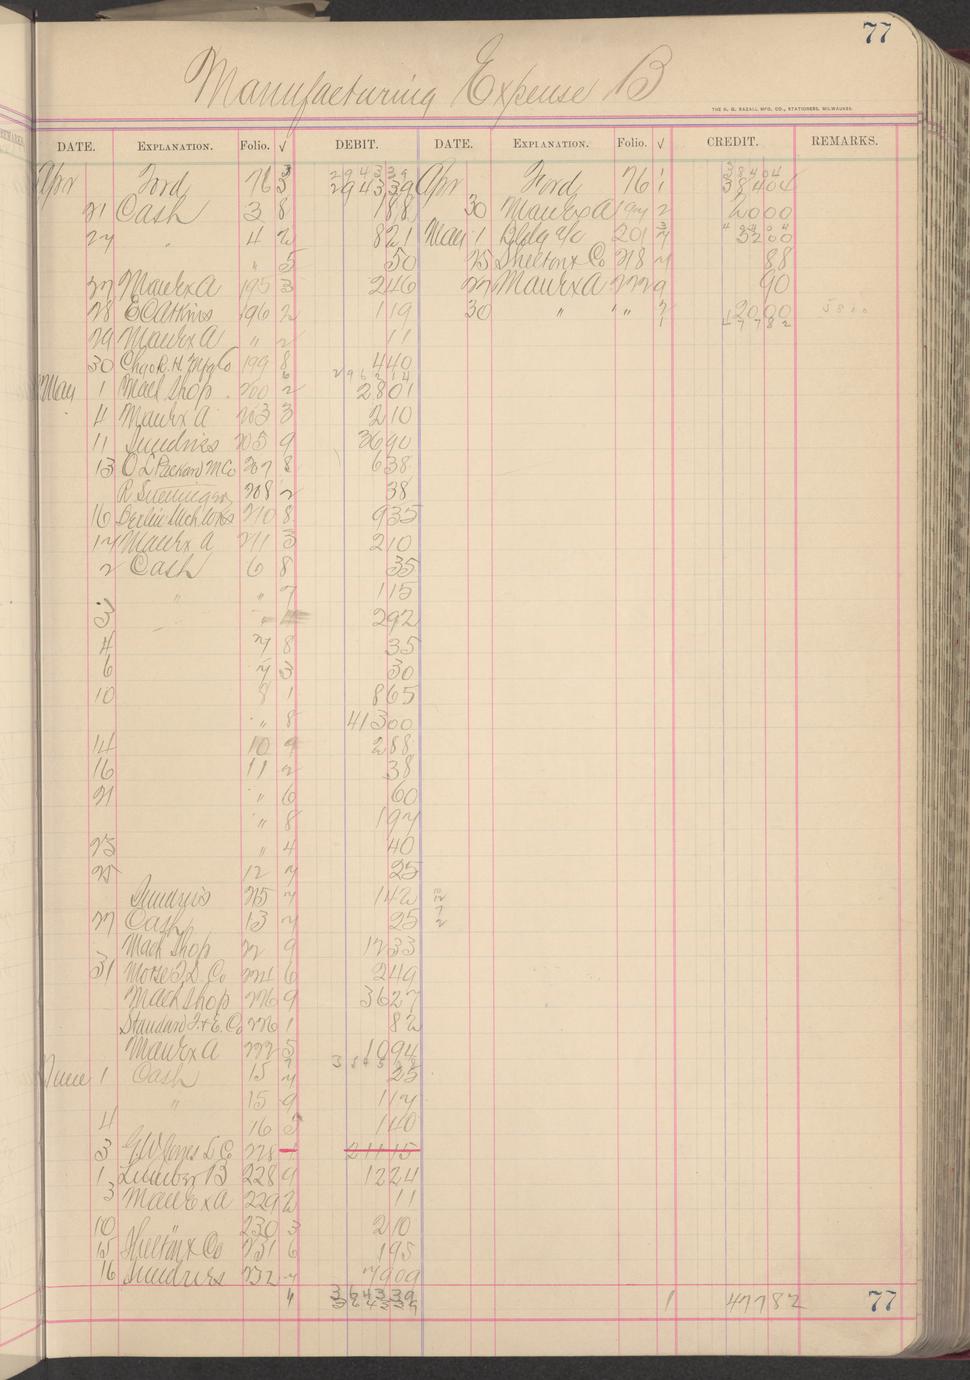 77
Manufacturing Expense B
THE H. G. RAZALL MFG. CO., STATIONERS, MILWAUKEE.
DATE. EXPLANATION. Folio. √ DEBIT. DATE. EXPLANATION. Folio. √ CREDIT. REMARKS.
294339 38404
Apr Ford 76 3 294339 Apr Ford 76 1 38404
21 Cash 3 8 188 30 Manf Ex A 197 2 6000
27 " 4 2 821 May 1 Bldg a/c 201 7 3200
" 5 50 25 Shelton & Co 218 7 88
27 Manf Ex A 195 3 246 27 Manf Ex A 222 9 90
28 E C Atkins 196 2 119 30 " " " 2000
29 Manf Ex A " 2 11 47782
30 Chas R. H. Mfg Co 199 8 440
May 1 Mach Shop 200 2 2801
4 Manf Ex A 203 3 210
11 Sundries 205 9 3690
13 O L Packard M Co 207 8 638
R 208 2 38
16 Berlin Mch Wks 210 8 935
17 Manf Ex A 211 3 210
2 Cash 6 8 35
" " 7 115
3 " 292
4 7 8 35
6 7 3 30
10 8 1 865
" 8 41300
14 10 9 288
16 11 2 38
21 " 6 60
" 8 197
23 " 4 40
25 12 7 25
Sundries 215 7 142
27 Cash 13 7 25
Mach Shop 22 9 1233
31 Morse T. D. Co 224 6 249
Mach Shop 226 9 3627
Standard T. & E. Co 226 1 82
Manf Ex A 227 5 1094
June 1 Cash 15 7 25
" 15 9 117
4 16 5 140
3 G W Jones L C 228 21115
1 Lumber B 228 9 1224
3 Manf Ex A 229 2 11
10 230 3 210
15 Shelton & Co 231 6 195
16 Sundries 232 7 7909
364339
4 364339 1 47782 77